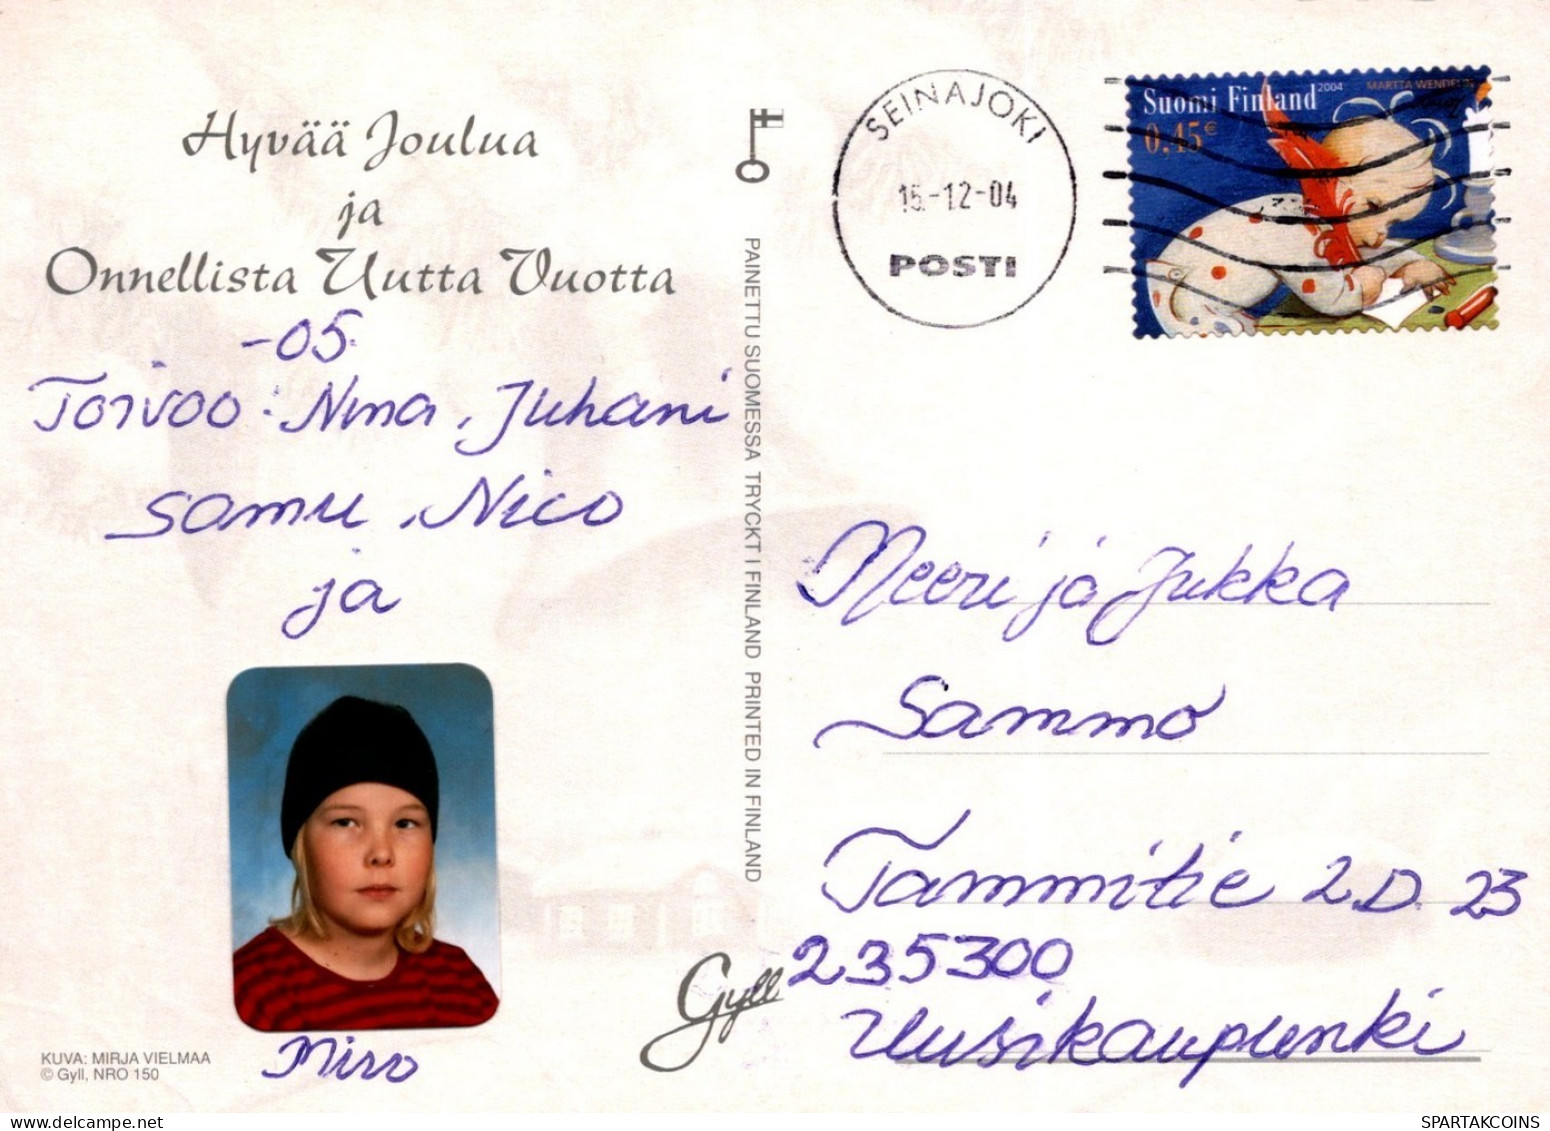 Hyvää Joulua
ja
Onnellista Uutta Vuotta
-05.
Toivoo: Nina, Juhani
Samu, Nico
ja
Miro
KUVA: MIRJA VIELMAA
© Gyll, NRO 150
PAINETTU SUOMESSA TRYCKT I FINLAND PRINTED IN FINLAND
Gyll
SEINÄJOKI
15.-12-04
POSTI
Suomi Finland 2004 MARTTA WENDELIN
0,45€
Meeri ja Jukka
Sammo
Tammitie 2.D. 23
235300
Uusikaupunki
SPARTAKCOINS